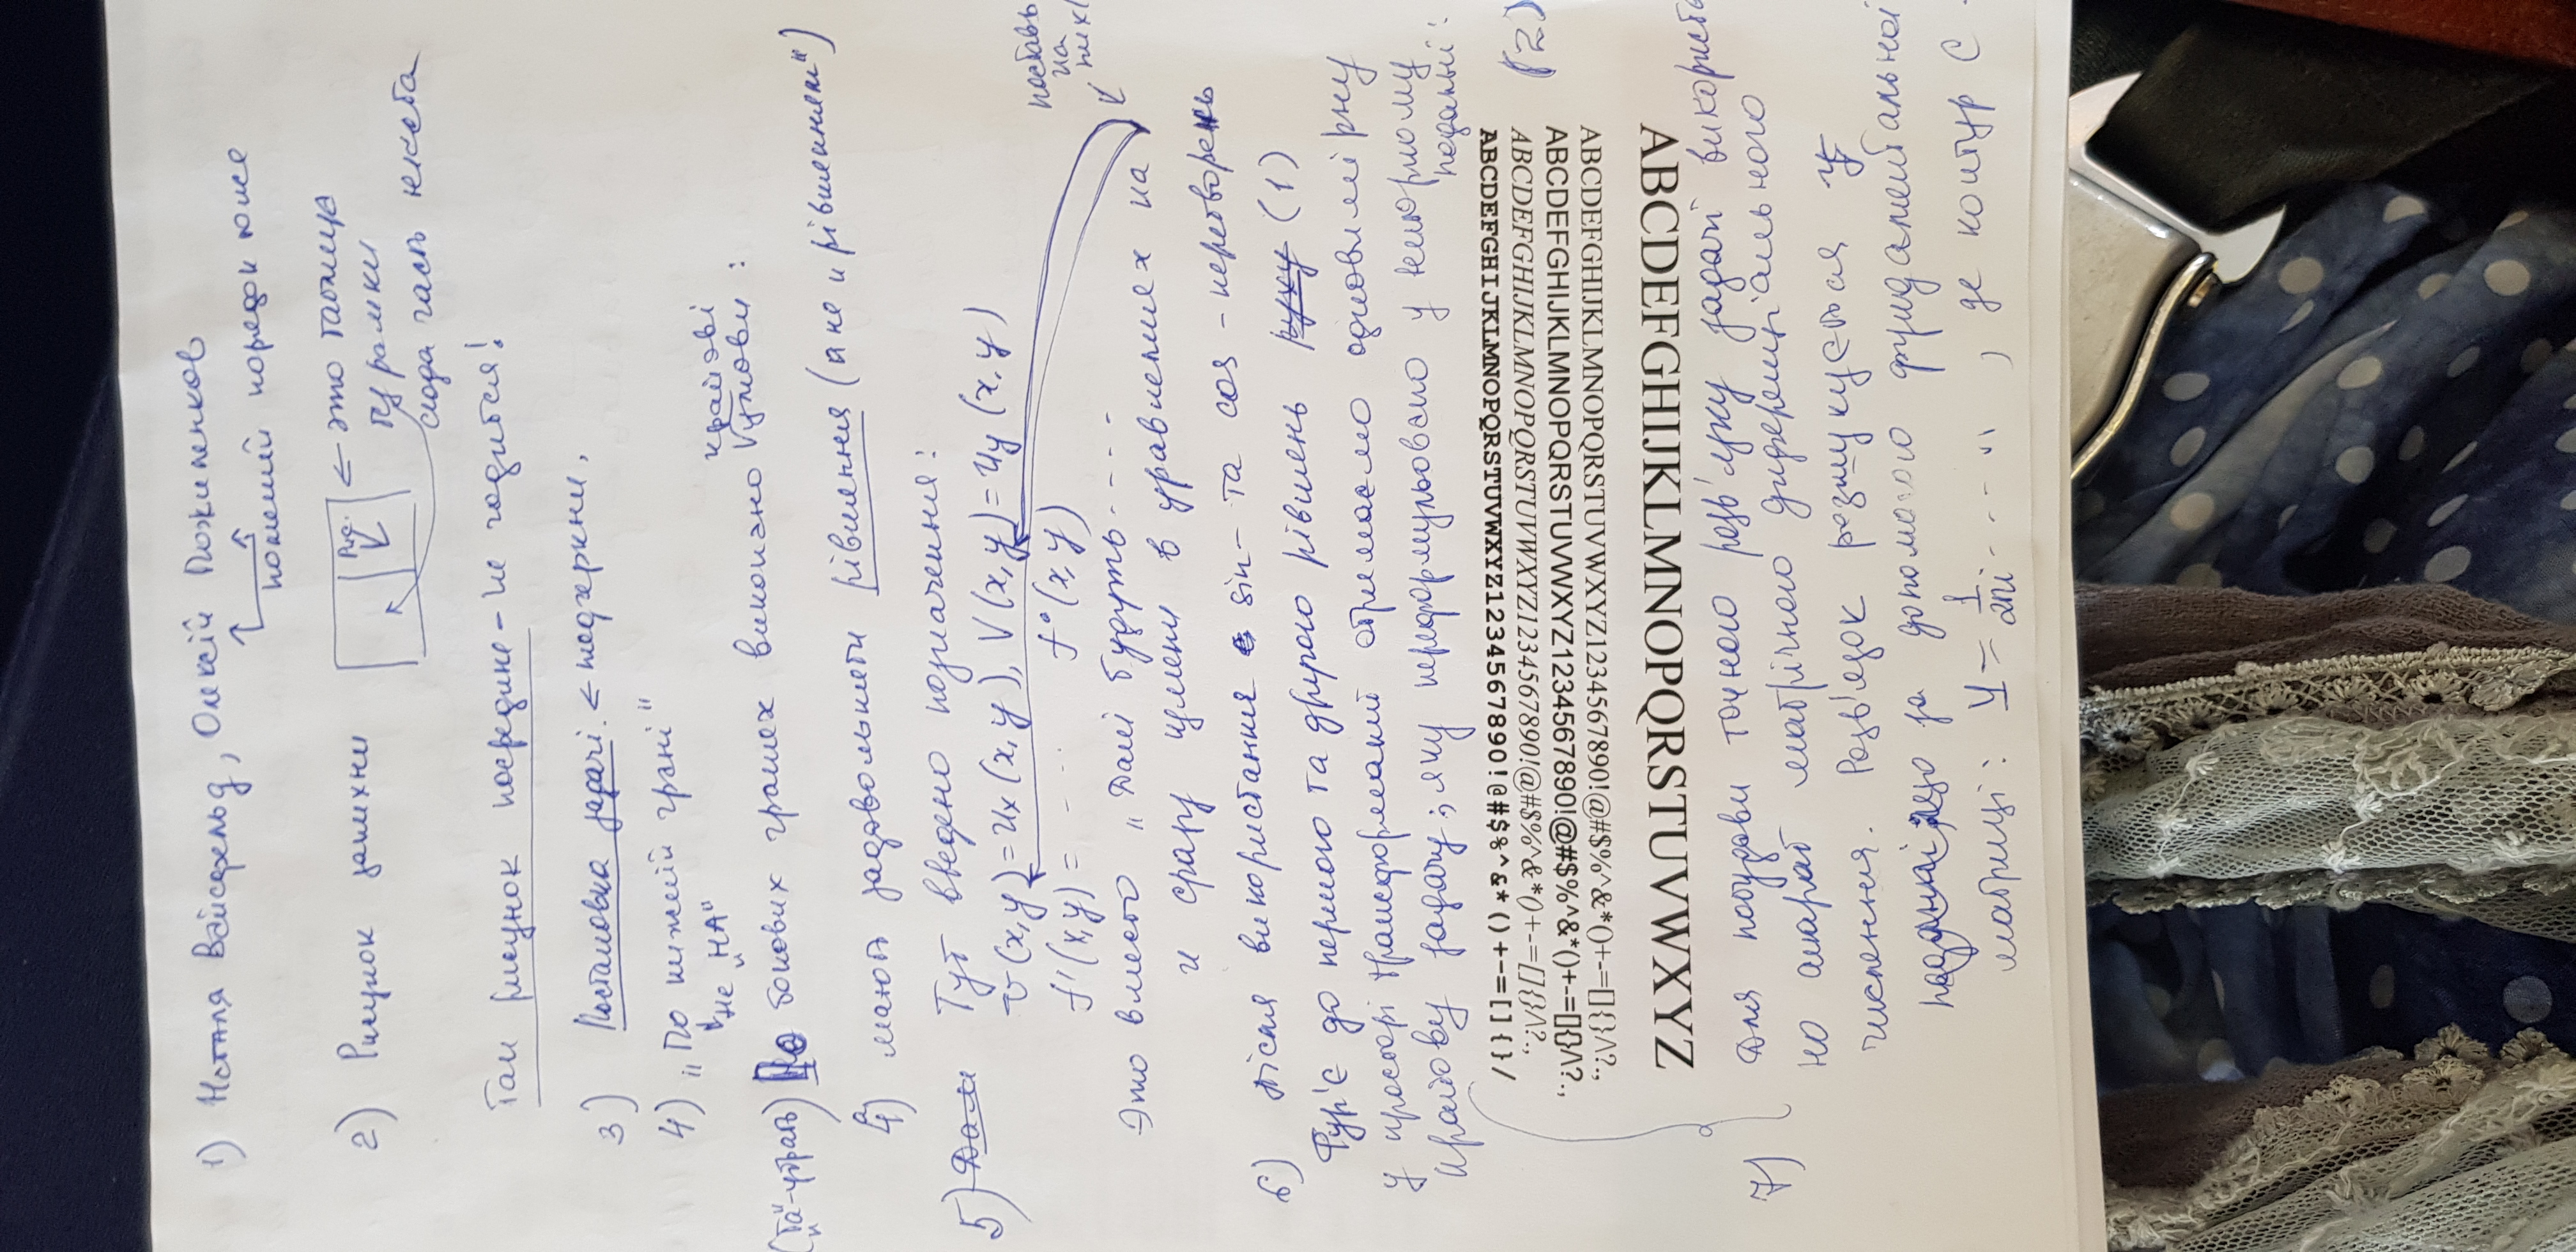 1) Наталя Вайсфельд, Олексій Пожиленков
поменяй порядок тоже
2) Рисунок запихни
Рис.
← это таблица
без рамки
сюда часть текста
Так рисунок посредине - не годится!
3) Постановка задачі. ← подчеркни.
4) „По нижній грані"
не „НА"
крайові
(„Та"-убрать) По бокових гранях виконано умови:
4a) мають задовольняти рівняння (а не „рівнянням")
5) Далі Тут введено позначення:
υ(x,y) = Ux(x,y), V(x,y) = Uy(x,y)
f'(x,y) = ... f°(x,y)
поставь
на
них
Это вместо „Далі будуть ....
и сразу измени в уравнениях на
6) Після використання sin- та cos - перетворень
Фур'є до першого та другого рівнянь руху (1)
у просторі трансформант отримаємо одновимірну
крайову задачу, яку переформульовано у векторному
поданні:
ABCDEFGHIJKLMNOPQRSTUVWXYZ1234567890!@#$%^&*()+-=[]{}/
ABCDEFGHIJKLMNOPQRSTUVWXYZ1234567890!@#$%^&*()+-=[]{}/\?.,
(2)
ABCDEFGHIJKLMNOPQRSTUVWXYZ1234567890!@#$%^&*()+-=[]{}/\?.,
ABCDEFGHIJKLMNOPQRSTUVWXYZ1234567890!@#$%^&*()+-=[]{}/\?.,
ABCDEFGHIJKLMNOPQRSTUVWXYZ
7) Для побудови точного розв'язку задачі використа
но апарат матрічного диференціального
числення. Розв'язок розшукується у
поданні, що за допомогою фундаментальної
матриці: Y = 1/2πi ...., де контур C